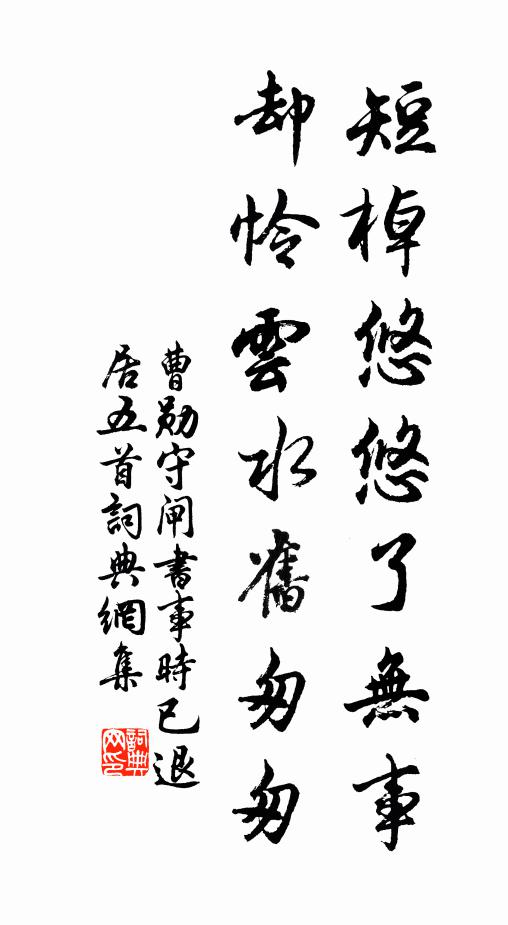 短棹悠悠了無事
却怜雲水舊匆匆
曹勛守闸書事時已退
居五首詞典網集
詞典网印